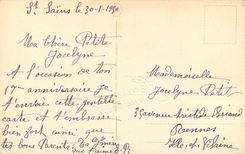 St Saëns le 30-1-1950
Ma Chère Petite
Jocelyne
A l'occasion de ton
17me anniversaire je
t'envoie cette gentille
carte et t'embrasse
bien fort, ainsi que
tes bons Parents.
qui t'aime
Mademoiselle
Jocelyne Petit
35 avenue Aristide Briand
Rennes
Ille et Vilaine